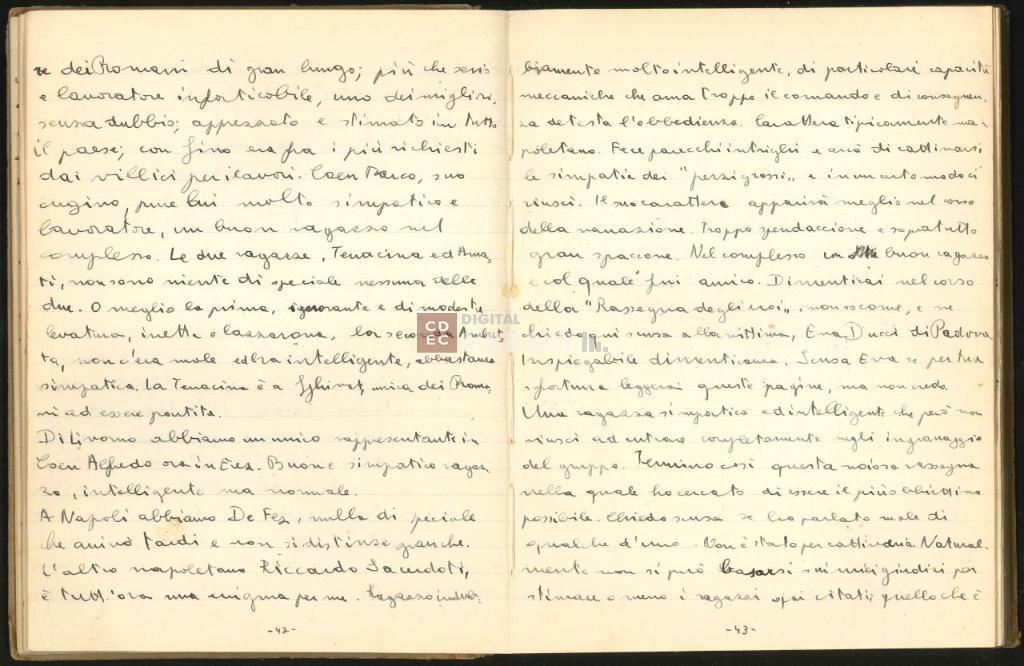 re dei Romani di gran lungo; più che serio
e lavoratore infaticabile, uno dei migliori,
senza dubbio; apprezzato e stimato in tutto
il paese; con Gino era fra i più richiesti
dai villici per i lavori. Coen Marco, suo
cugino, pure lui molto simpatico e
lavoratore, un buon ragazzo nel
complesso. Le due ragazze, Tenacina ed Ama-
ti, non sono niente di speciale nessuna delle
due. O meglio la prima, ignorante e di modesta
levatura, inetta e lazzarona, la seconda
ta, non c'era male ed era intelligente, abbastanza
simpatica. La Tenacina è a unica dei Roma-
ni ad essere partita.
Di Livorno abbiamo un unico rappresentante in
Coen Alfredo ora in Erez. Buon e simpatico ragaz-
zo, intelligente ma normale.
A Napoli abbiamo De Fez, nulla di speciale
che arrivò tardi e non si distinse granche.
L'altro napoletano Riccardo Sacerdoti,
è tutt'ora una enigma per me. Ragazzo indub-
-42-
biamente molto intelligente, di particolari capacità
meccaniche che ama troppo il comando e di conseguen-
za detesta l'obbedienza. Carattere tipicamente na-
poletano. Fece parecchi intrighi e cercò di cattivarsi
le simpatie dei "pezzi grossi" e in un certo modo ci
riuscì. Il suo carattere apparirà meglio nel corso
della narrazione. Troppo spendaccione e sopratutto
gran spaccone. Nel complesso un buon ragazzo
e col quale fui amico. Dimenticai nel corso
della "Rassegna degli eroi", non so come, e ne
chiedo qui scusa alla vittima, Eva Ducci di Padova
Inspiegabile dimenticanza. Scusa Eva se per tua
sfortuna leggerai queste pagine, ma non credo.
Una ragazza simpatica ed intelligente che però non
riuscì ad entrare completamente negli ingranaggio
del gruppo. Termino così questa noiosa rassegna
nella quale ho cercato di essere il più obbiettivo
possibile. Chiedo scusa se ho parlato male di
qualche d'uno. Non è stato per cattiveria. Natural-
mente non si può basarsi sui miei giudizi per
stimare o meno i ragazzi citati; quello che è
-43-
CD
EC
DIGITAL